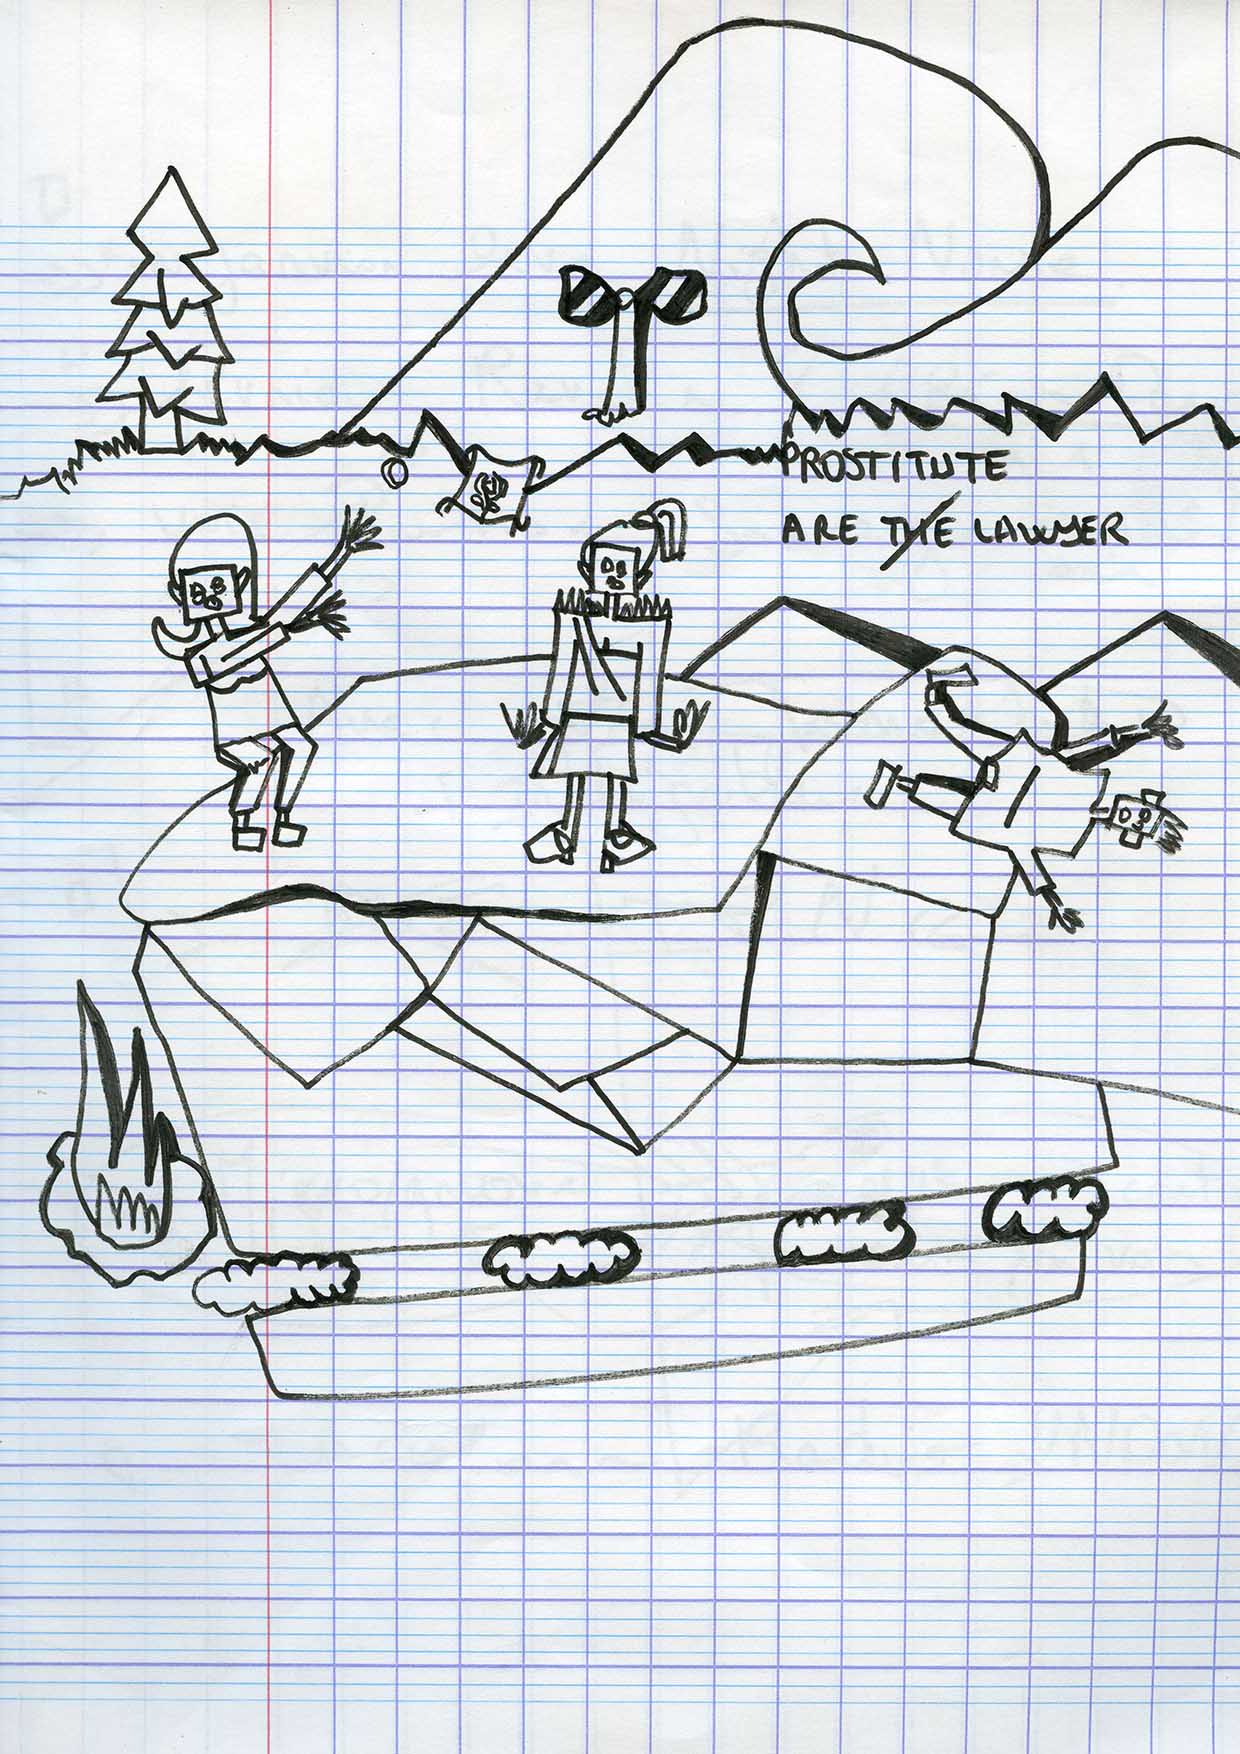 PROSTITUTE
ARE THE LAWYER